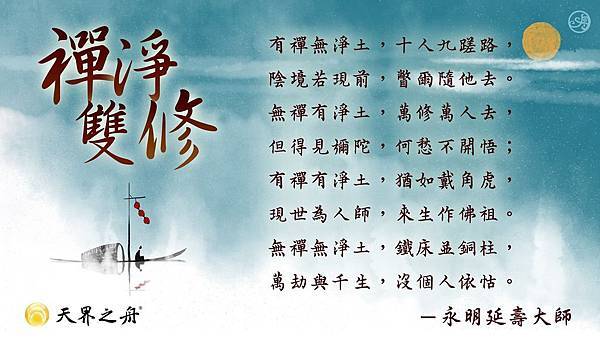 禪淨
雙修
有禪無淨土，十人九蹉路，
陰境若現前，瞥爾隨他去。
無禪有淨土，萬修萬人去，
但得見彌陀，何愁不開悟；
有禪有淨土，猶如戴角虎，
現世為人師，來生作佛祖。
無禪無淨土，鐵床並銅柱，
萬劫與千生，沒個人依怙。
－永明延壽大師
天界之舟®